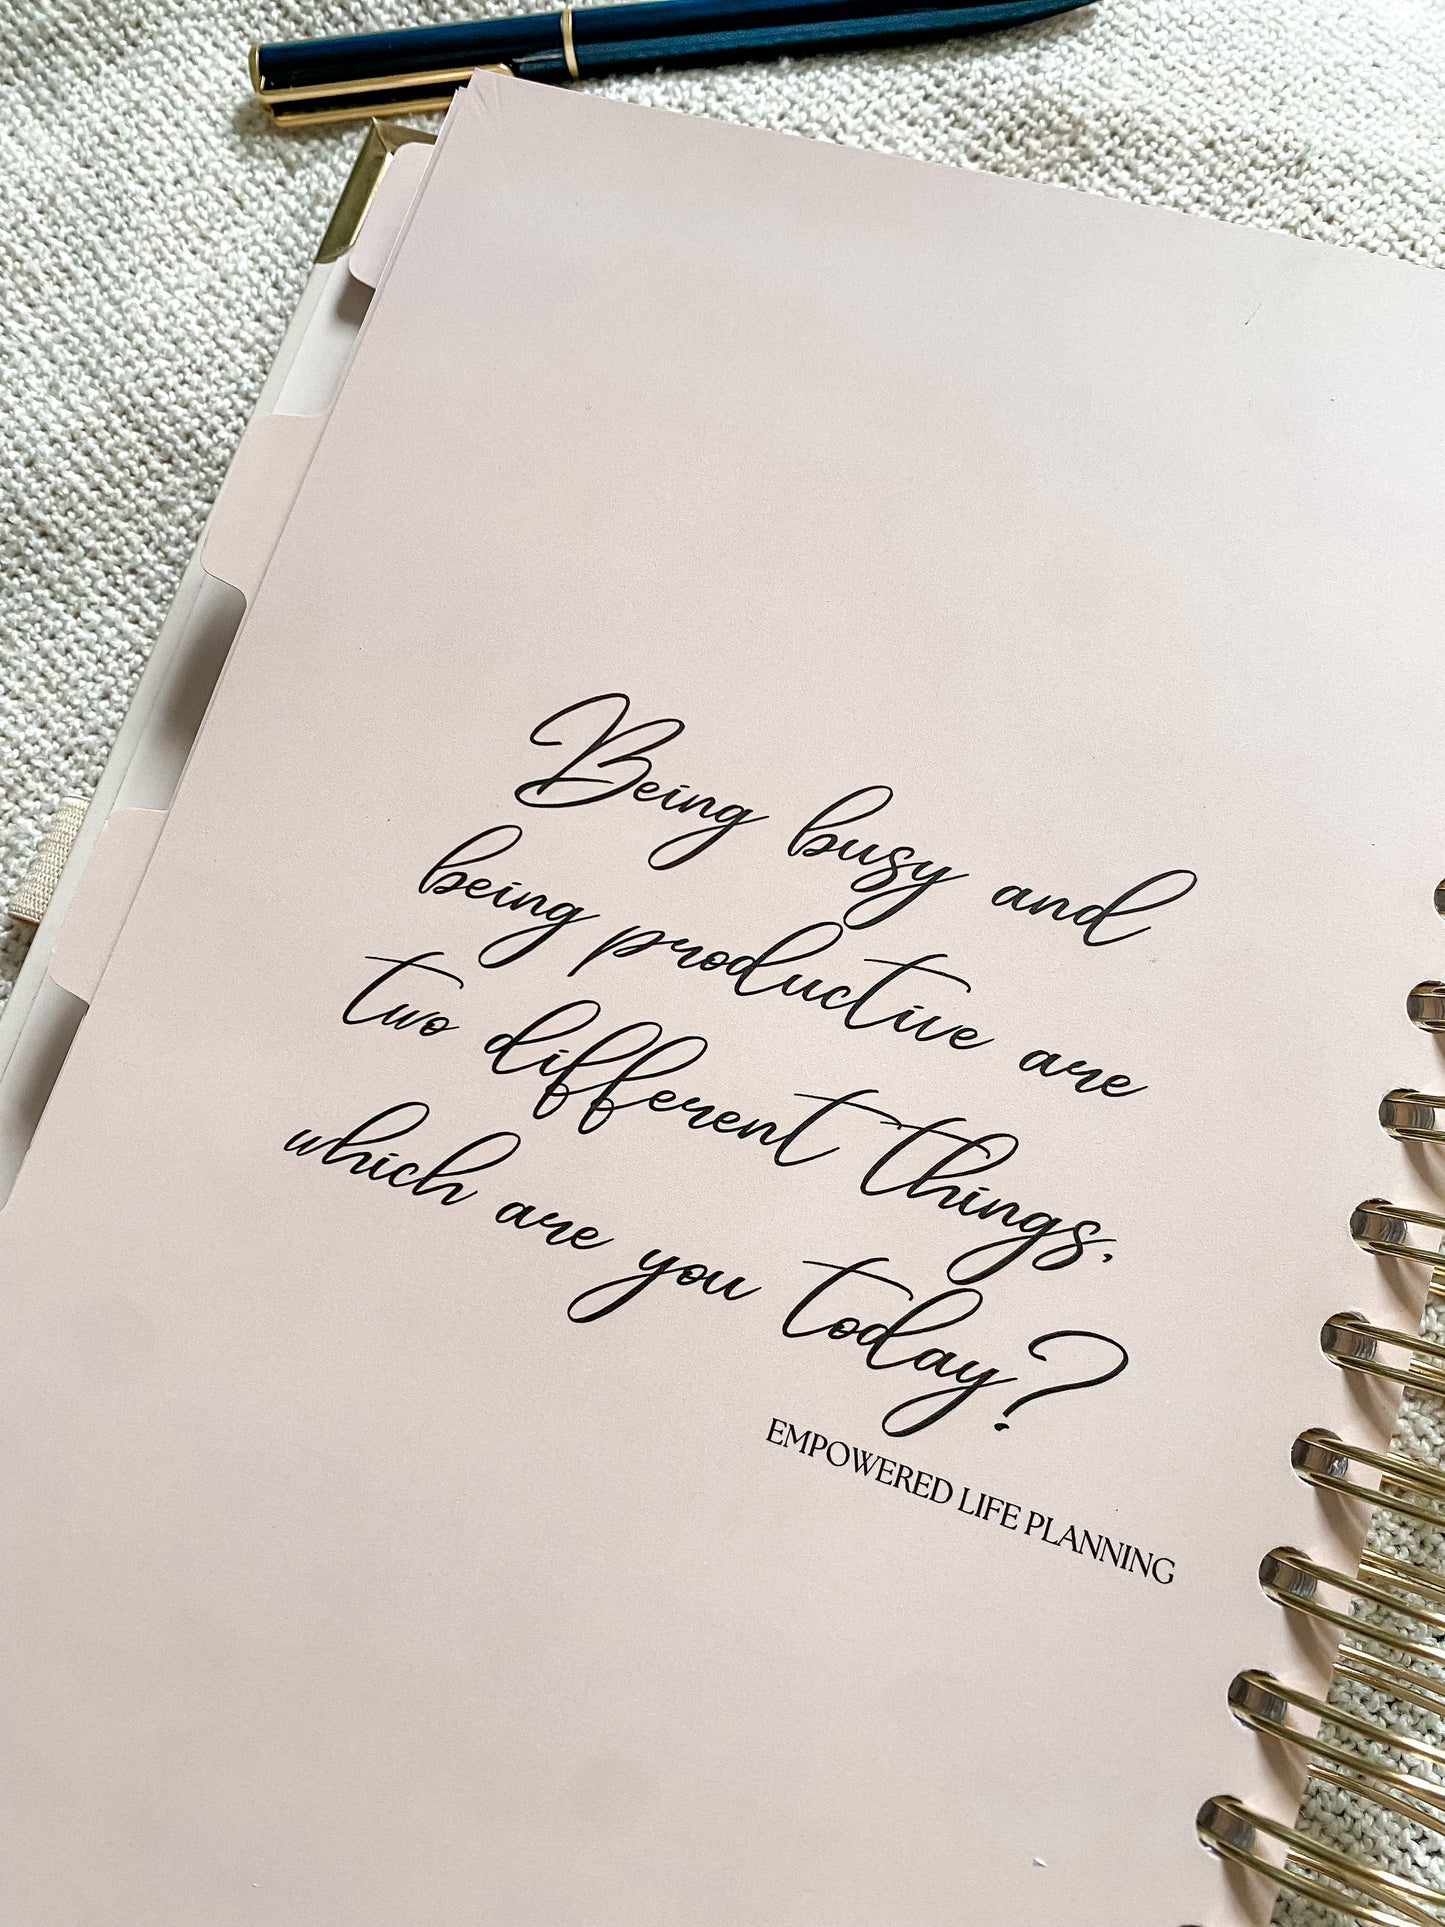 Being busy and
being productive are
two different things,
which are you today?
EMPOWERED LIFE PLANNING